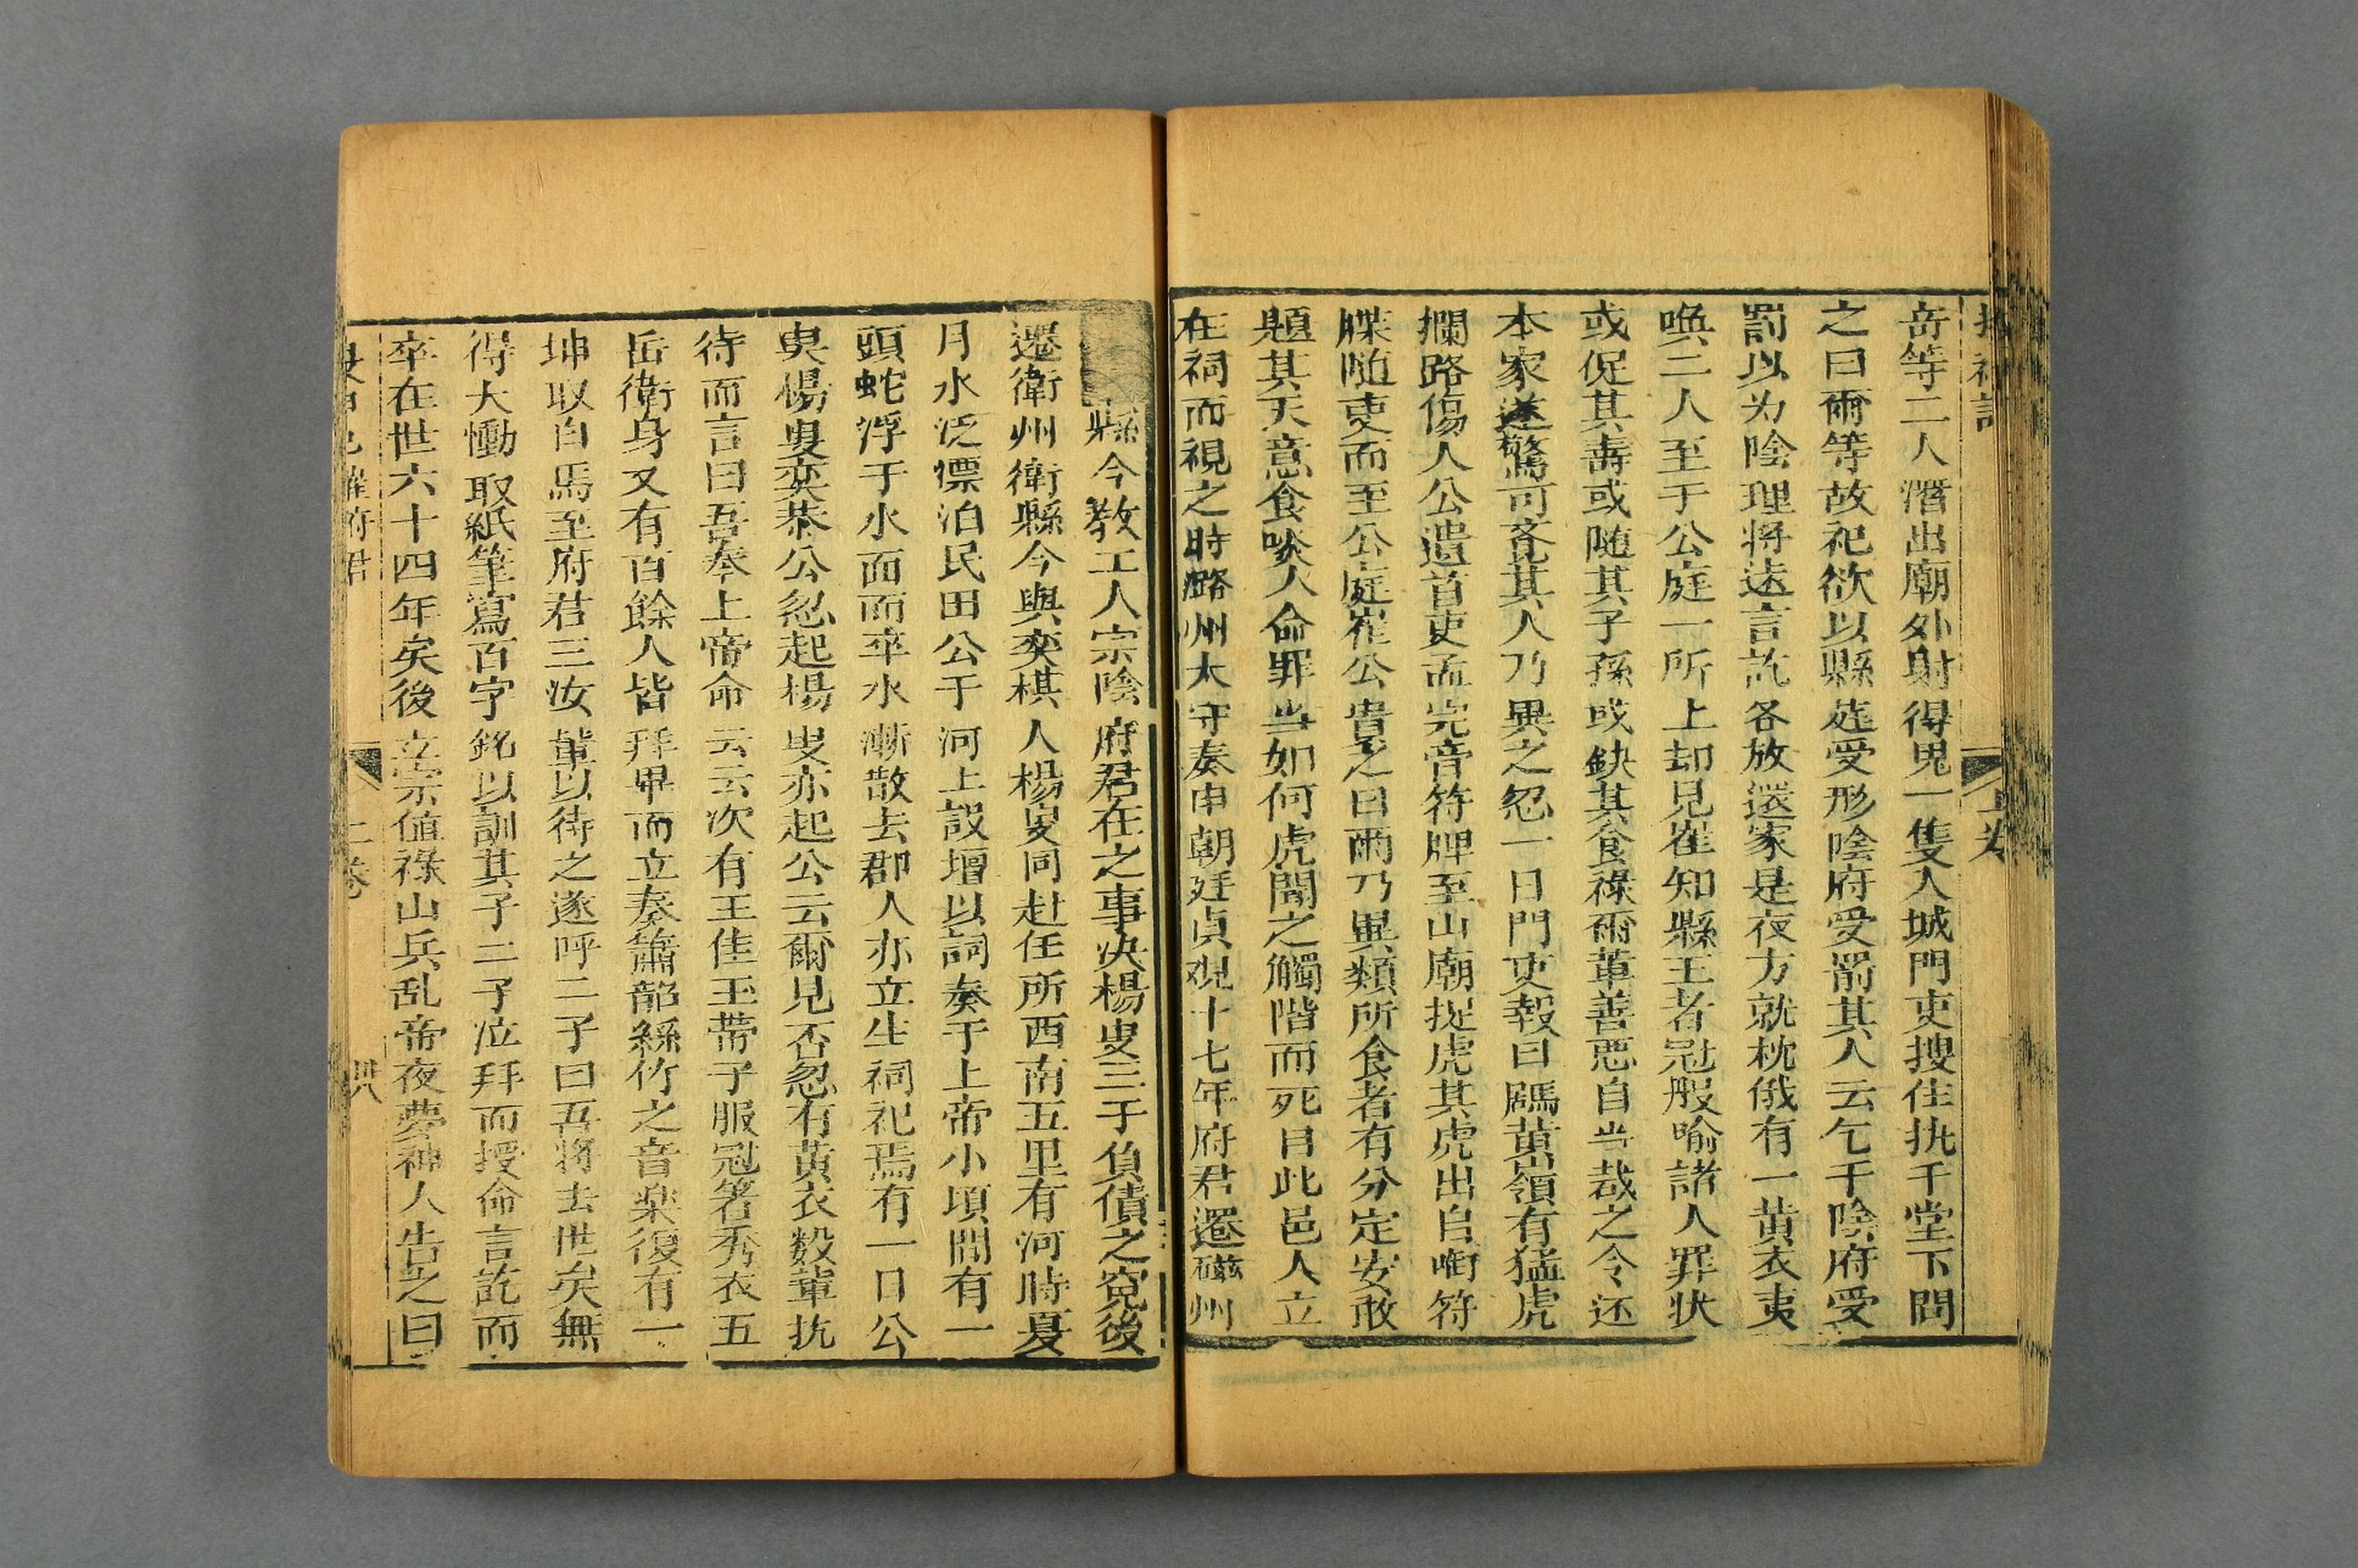 岳等二人潛出廟外射得兎一隻入城門吏搜住执于堂下問
之曰爾等故祀欲以縣庭受形陰府受罰其人云乞于陰府受
罰以为陰理将遠言訖各放還家是夜方就枕俄有一黄衣吏
喚二人至于公庭一所上却見崔知縣王者冠服喻諸人罪状
或促其壽或随其子孫或缺其食祿爾軰善惡自当哉之令还
本家遂驚可吝其人乃異之忽一日門吏報曰碼黄嶺有猛虎
攔路傷人公遣首吏孟完音符牌至山廟捉虎其虎出自啣符
牒随吏而至公庭崔公責之曰爾乃異類所食者有分定安敢
題其天意食啖人命罪当如何虎聞之觸階而死自此邑人立
在祠而視之時潞州太守奏申朝廷貞观十七年府君遷磁州
縣令教工人宗陰府君在之事决楊叟三子負債之寃後
遷衛州衛縣令與奕棋人楊叟同赴任所西南五里有河時夏
月水泛漂泊民田公于河上設壇以詞奏于上帝小頃間有一
頭蛇浮于水面而卒水漸散去郡人亦立生祠祀焉有一日公
與楊叟奕棊公忽起楊叟亦起公云爾見否忽有黄衣数輩执
待而言曰吾奉上帝命云云次有王佳玉帯子服冠箸秀衣五
岳衛身又有百餘人皆拜畢而立奏簫韶絲竹之音楽復有一
坤取白馬至府君三汝軰以待之遂呼二子曰吾将去世矣無
得大慟取紙筆寫百字銘以訓其子二子泣拜而授命言訖而
卒在世六十四年矣後立宗值祿山兵乱帝夜夢神人告之曰
崔府君